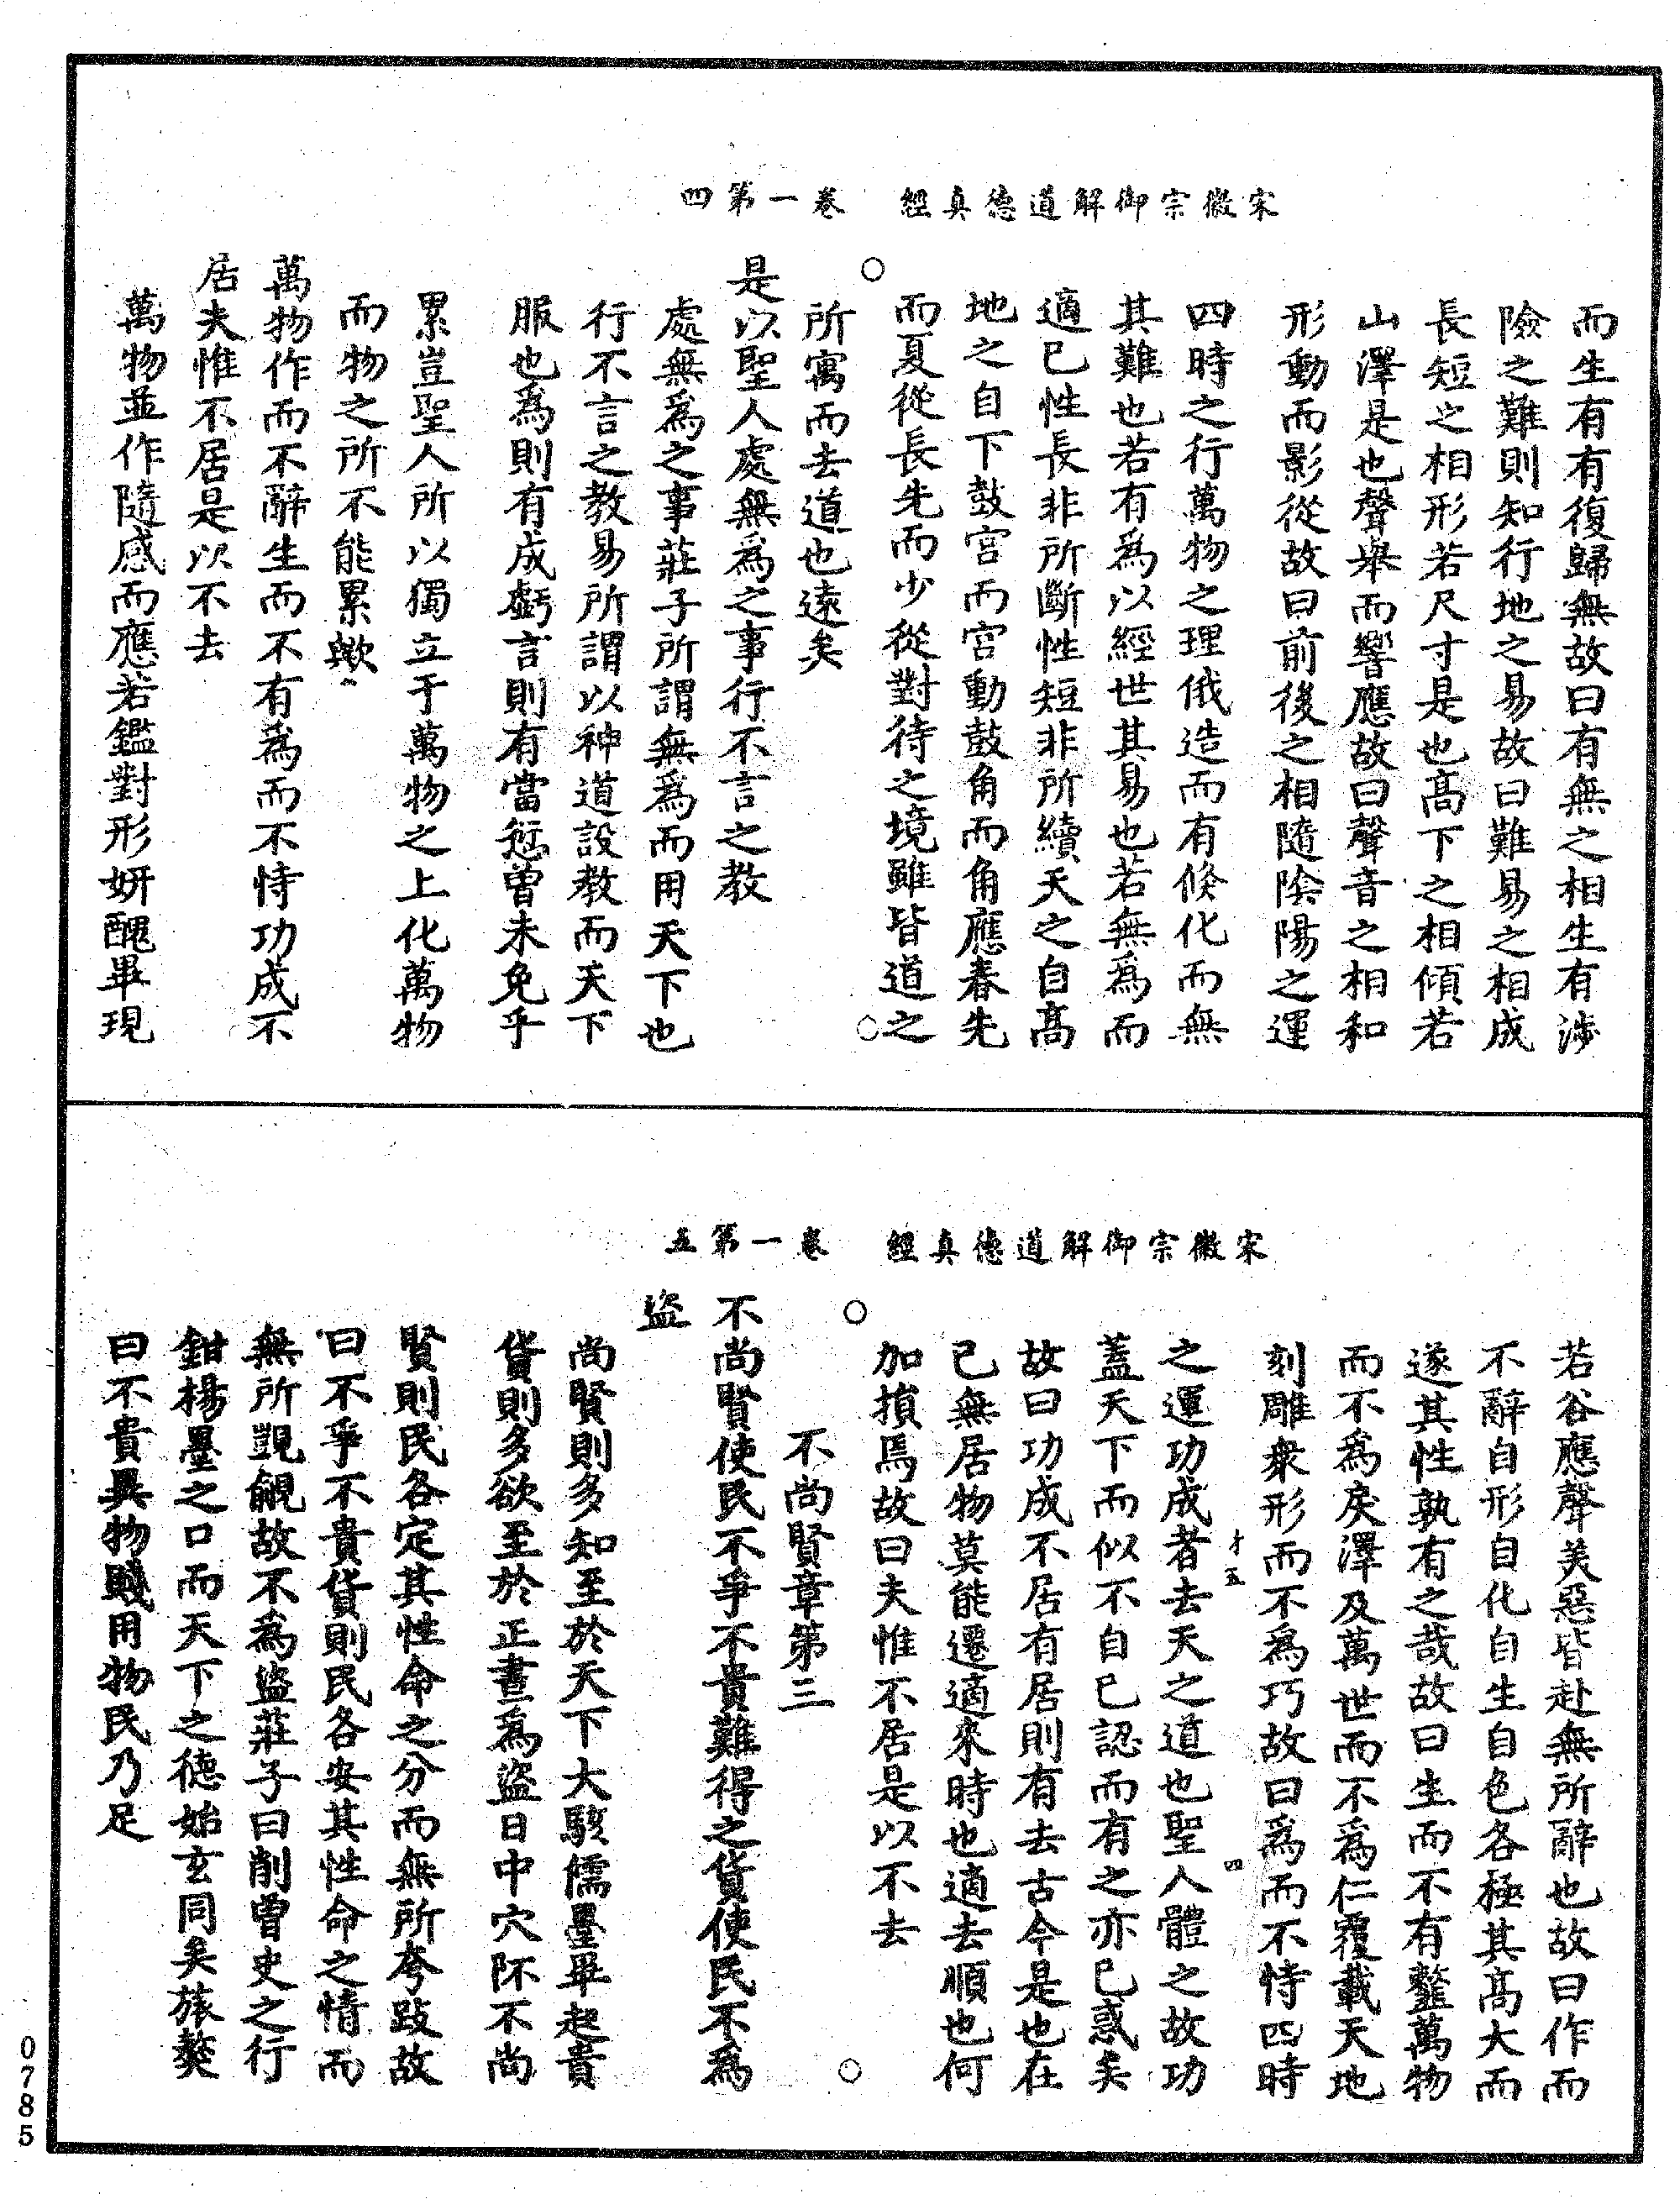 宋徽宗御解道德真經　卷一第四
而生有有復歸無故曰有無之相生有涉
險之難則知行地之易故曰難易之相成
長短之相形若尺寸是也高下之相傾若
山澤是也聲舉而響應故曰聲音之相和
形動而影從故曰前後之相隨陰陽之運
四時之行萬物之理俄造而有倏化而無
其難也若有為以經世其易也若無為而
適己性長非所斷性短非所續天之自高
地之自下鼓宮而宮動鼓角而角應春先
而夏從長先而少從對待之境雖皆道之
所寓而去道也遠矣
是以聖人處無為之事行不言之教
處無為之事莊子所謂無為而用天下也
行不言之教易所謂以神道設教而天下
服也為則有成虧言則有當愆曾未免乎
累豈聖人所以獨立于萬物之上化萬物
而物之所不能累歟
萬物作而不辭生而不有為而不恃功成不
居夫惟不居是以不去
萬物並作隨感而應若鑑對形妍醜畢現
宋徽宗御解道德真經　卷一第五
若谷應聲美惡皆赴無所辭也故曰作而
不辭自形自化自生自色各極其高大而
遂其性孰有之哉故曰生而不有韲萬物
而不為戾澤及萬世而不為仁覆載天地
刻雕衆形而不為巧故曰為而不恃四時
才五　四
之運功成者去天之道也聖人體之故功
蓋天下而似不自己認而有之亦已惑矣
故曰功成不居有居則有去古今是也在
己無居物莫能遷適來時也適去順也何
加損焉故曰夫惟不居是以不去
不尚賢章第三
不尚賢使民不爭不貴難得之貨使民不為
盜
尚賢則多知至於天下大駭儒墨畢起貴
貨則多欲至於正晝為盜日中穴阫不尚
賢則民各定其性命之分而無所夸跂故
曰不爭不貴貨則民各安其性命之情而
無所覬覦故不為盜莊子曰削曾史之行
鉗楊墨之口而天下之德始玄同矣旅獒
曰不貴異物賤用物民乃足
0785